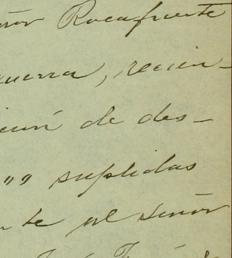 ñor Rocafuerte
guerra, recien-
de des-
" suplidas
te al señor